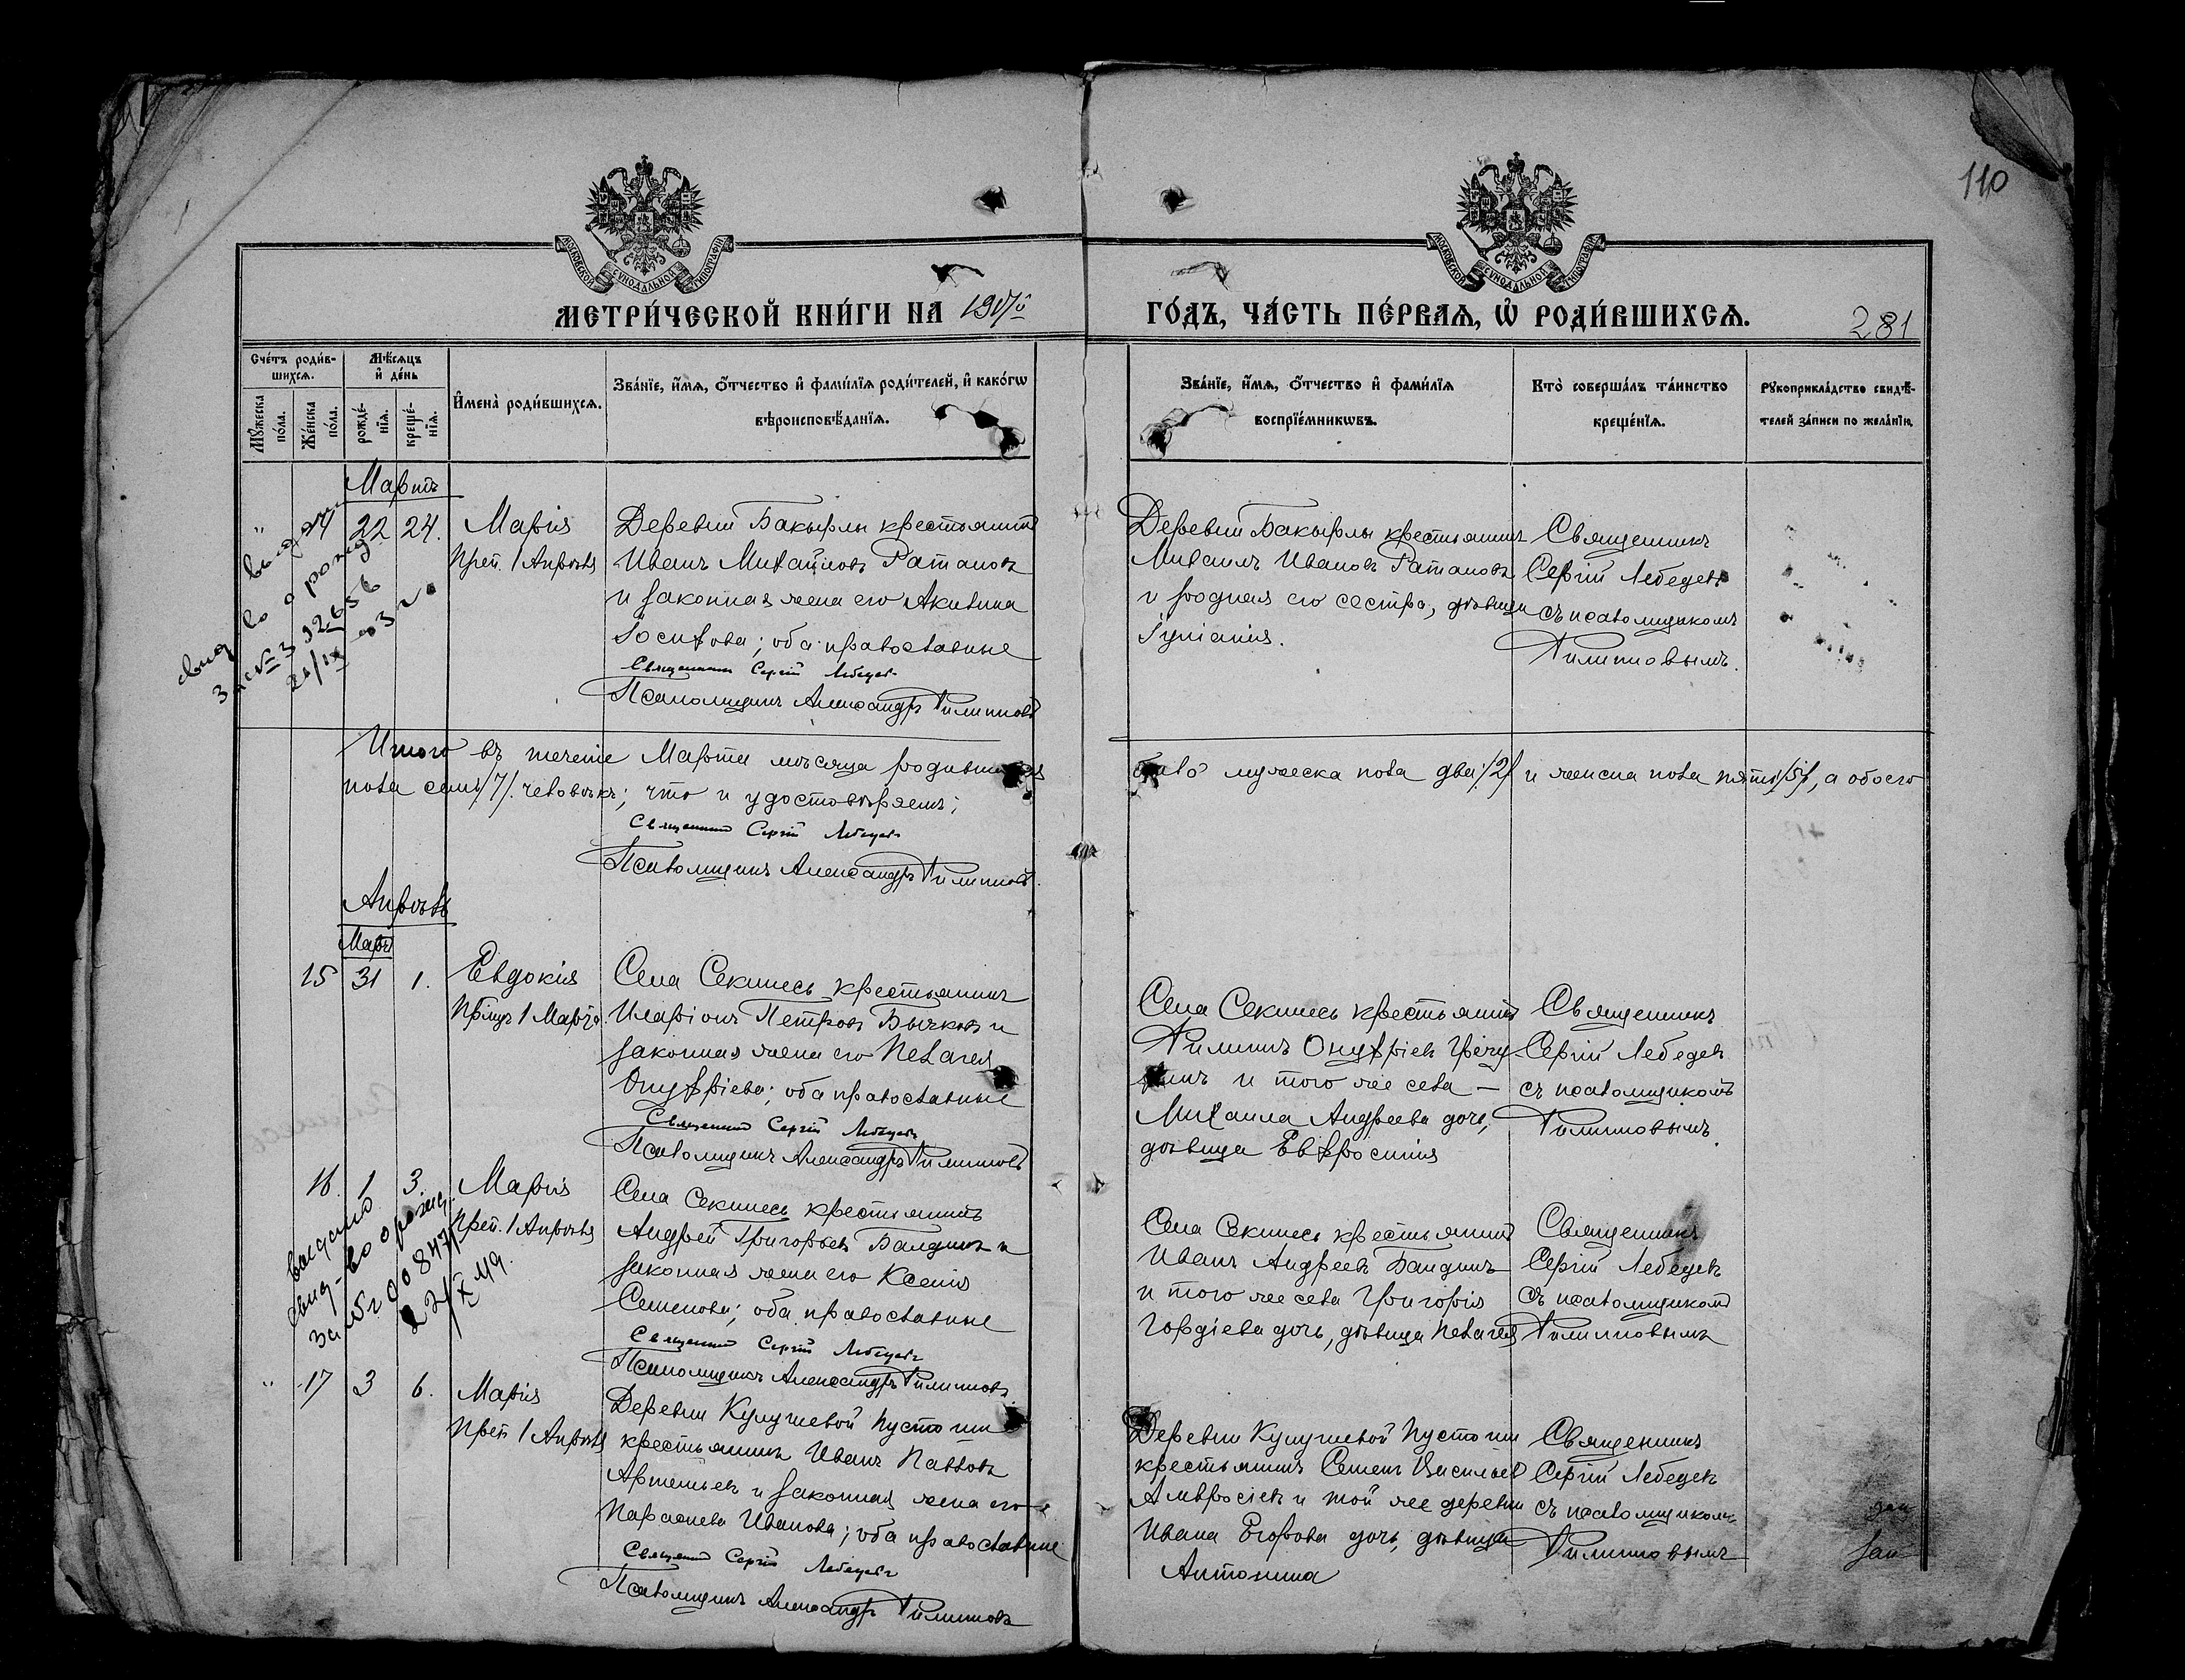 110
МОСКОВСКОЙ СѴНОДАЛЬНОЙ ТИПОГРАФІИ
МОСКОВСКОЙ СѴНОДАЛЬНОЙ ТИПОГРАФІИ
МЕТРИ́ЧЕСКОЙ КНИ́ГИ НА
ГО́ДЪ, ЧА́СТЬ ПЕ́РВАѦ, Ѽ РОДИ́ВШИХСѦ.
281
Сче́тъ роди́в-
шихсѧ.
Мѣ́сѧцъ
и҆ де́нь
Мꙋ́жеска
по́ла.
Же́нска
по́ла.
рожде́-
нїѧ.
креще́-
нїѧ.
И҆мена̀ роди́вшихсѧ.
Зва́нїе, и҆́мѧ, ѻ҆́тчество и҆ фами́лїѧ роди́телей, и҆ како́гѡ
вѣроисповѣ́данїѧ.
Зва́нїе, и҆́мѧ, ѻ҆́тчество и҆ фами́лїѧ
воспрїе́мникѡвъ.
Кто̀ соверша́лъ та́инство
креще́нїѧ.
Рꙋкоприкла́дство свидѣ́-
телей за́писи по жела́нїю.
Мартъ
" 14 22 24.
Марія
Преп. 1 Апрѣля
Деревни Бакырлы крестьянинъ
Иванъ Михайловъ Ратановъ
и законная жена его Акилина
Іосифова; оба православные
Священникъ Сергій Лебедевъ
Псаломщикъ Александръ Филипповъ
Деревни Бакырлы крестьянинъ
Михаилъ Ивановъ Ратановъ
и родная его сестра, дѣвица
Іуліанія.
Священникъ
Сергій Лебедевъ
съ псаломщикомъ
Филипповымъ.
свид-во о рожд.
Итого въ теченіе Марта мѣсяца родившихся
было мужеска пола два /2/ и женска пола пять /5/, а обоего
пола семь /7/ человѣкъ; что и удостовѣряемъ;
Священникъ Сергій Лебедевъ
Псаломщикъ Александръ Филипповъ.
Апрѣль
Март
15 31 1.
Евдокія
Прмц. 1 Марта.
Села Секинесь крестьянинъ
Иларіонъ Петровъ Бычковъ и
законная жена его Пелагея
Онуфріева; оба православные
Священникъ Сергій Лебедевъ
Псаломщикъ Александръ Филипповъ
Села Секинесь крестьянинъ
Филиппъ Онуфріевъ
и того же села —
Михаила Андреева дочь,
дѣвица Евфросинія
Священникъ
Сергій Лебедевъ
съ псаломщикомъ
Филипповымъ.
16. 1 3.
Марія
Преп. 1 Апрѣля
Села Секинесь крестьянинъ
Андрей Григорьевъ Балдинъ и
законная жена его Ксенія
Семенова; оба православные
Священникъ Сергій Лебедевъ
Псаломщикъ Александръ Филипповъ
Села Секинесь крестьянинъ
Иванъ Андреевъ Балдинъ
и того же села Григорія
Гордіева дочь, дѣвица Пелагея
Священникъ
Сергій Лебедевъ
съ псаломщикомъ
Филипповымъ
выдано
свид-во о рожд.
" 17 3 6.
Марія
Преп 1 Апрѣля
Деревни Кулушевой Пустоши
крестьянинъ Иванъ Павловъ
Артемьевъ и законная жена его
Параскева Иванова; оба православные
Священникъ Сергій Лебедевъ
Псаломщикъ Александръ Филипповъ
Деревни Кулушевой Пустоши
крестьянинъ Семенъ Васильевъ
Амвросіевъ и той же деревни
Ивана Егорова дочь, дѣвица
Антонина
Священникъ
Сергій Лебедевъ
съ псаломщикомъ
Филипповымъ